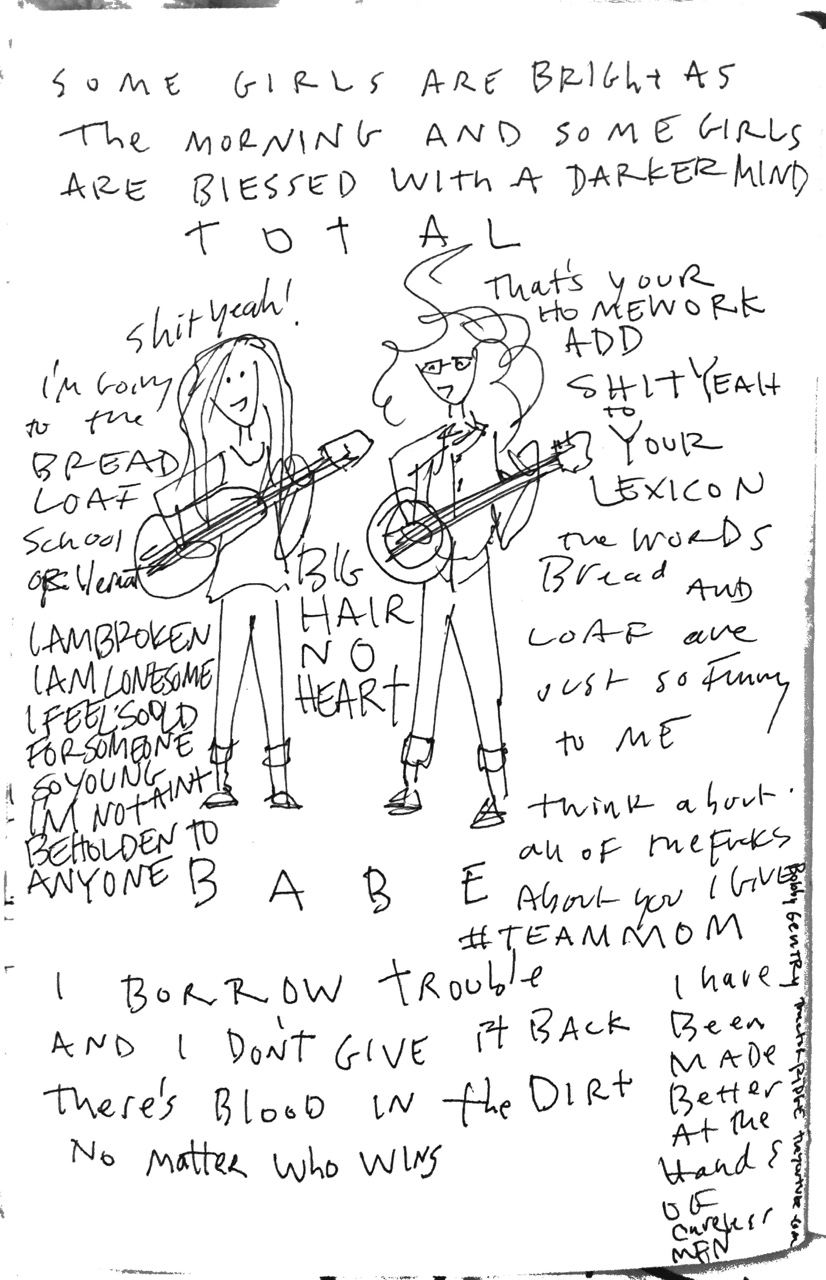 SOME GIRLS ARE BRIGHT AS
The MORNING AND SOME GIRLS
ARE BLESSED WITH A DARKER MIND
TOTAL
Shit yeah!
I'm Going
to the
BREAD
LOAF
School
I AM BROKEN
I AM LONESOME
I FEEL SO OLD
FOR SOMEONE
SO YOUNG
I'M NOT AINT
BEHOLDEN TO
ANYONE
BIG
HAIR
NO
HEART
That's your
HOMEWORK
ADD
SHIT YEAH
to
YOUR
LEXICON
the WORDS
Bread AND
LOAF are
Just so Funny
to ME
think about
all OF the Fucks
About you I GIVE
#TEAMMOM
BABE
I BORROW trouble
AND I DON'T GIVE it BACK
there's BLOOD IN the DIRt
No Matter Who WINS
I have
Been
MADE
Better
At the
Hands
OF
Careless
MEN
Bobby GentRy